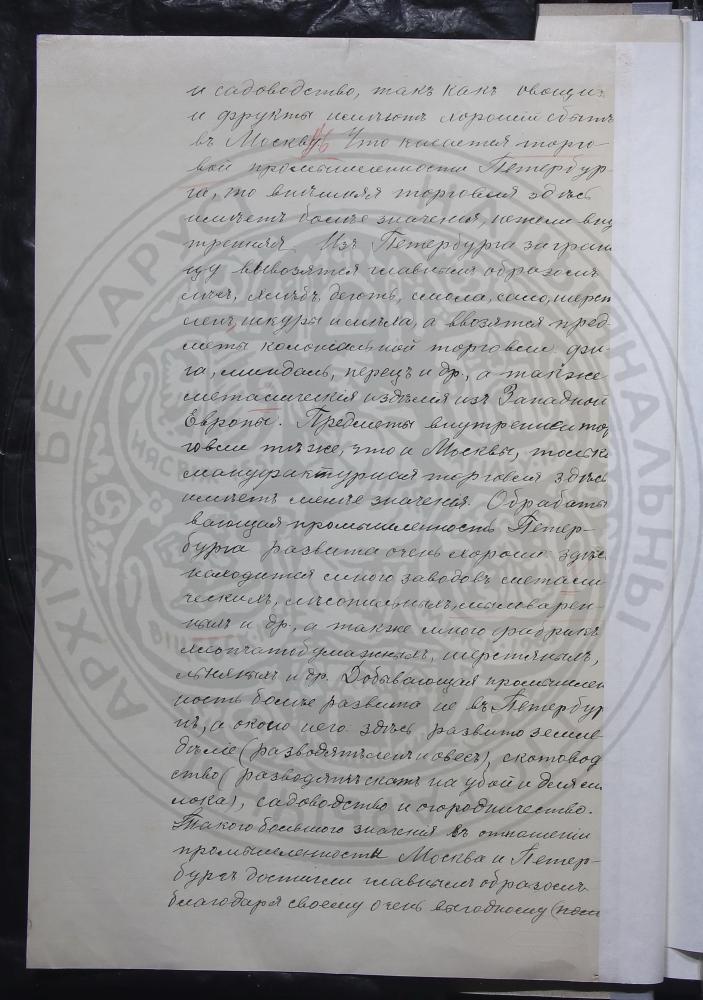 и садоводство, такъ какъ овощи
и фрукты имѣютъ хорошій сбытъ
въ Москву. Что касается торго-
вой промышленности Петербур-
га, то внѣшняя торговля здѣсь
имѣетъ болѣе значенія, нежели вну
тренняя. Изъ Петербурга заграни
цу вывозятся главнымъ образомъ
лѣсъ, хлѣбъ, деготь, смола, сало, шерст
ленъ, шкуры и смола, а ввозятся пред-
меты колоніальной торговли: фи-
га, миндаль, перецъ и др., а также
металическія издѣлія изъ Западной
Европы. Предметы внутренней тор
говли тѣже, что и Москвы, только
мануфактурная торговля здѣсь
имѣетъ менѣе значенія. Обрабаты
вающая промышленность Петер-
бурга развита очень хорошо: здѣсь
находится много заводовъ метали
ческихъ, лѣсопильныхъ, мыловарен-
ныхъ и др., а также много фабрикъ
хлопчатобумажныхъ, шерстяныхъ,
льняныхъ и др. Добывающая промышлен
ность болѣе развита не въ Петербур
гѣ, а около него: здѣсь развито земле
дѣліе (разводятъ ленъ и овесъ), скотовод
ство (разводятъ скотъ на убой и для мо
лока), садоводство и огородничество.
Такого большого значенія въ отношеніи
промышленности Москва и Петер-
бургъ достигли главнымъ образомъ
благодаря своему очень выгодному (поли
АРХІЎ БЕЛАРУСІ НАЦЫЯНАЛЬНЫ